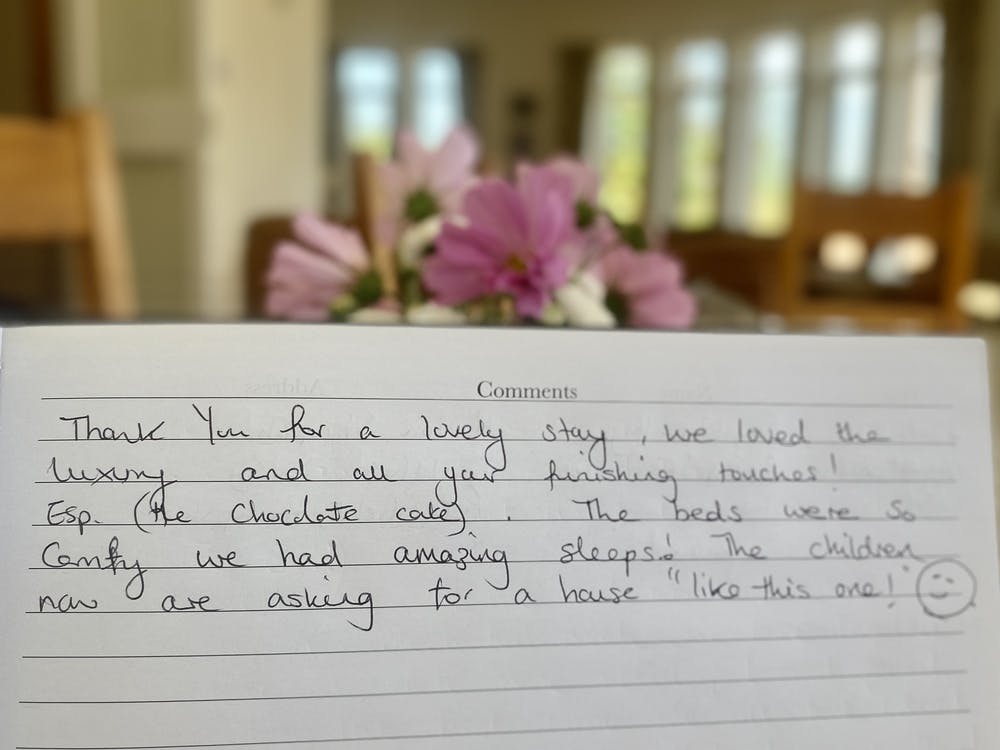 Comments
Thank You for a lovely stay, we loved the
luxury and all your finishing touches!
Esp. (the Chocolate cake). The beds were so
Comfy we had amazing sleeps! The children
now are asking for a house "like this one!"